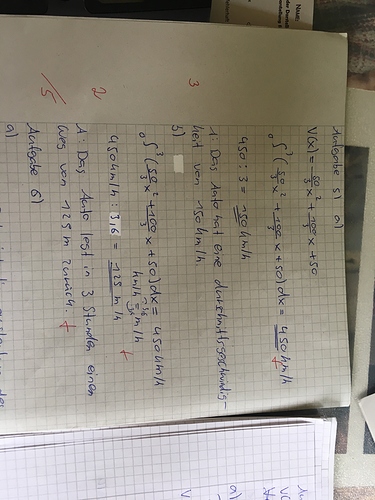 Aufgabe 5) a)
V(x) = -50/3 x² + 100/3 x + 50
₀∫³ (-50/3 x² + 100/3 x + 50) dx = 450 km/h
450 : 3 = 150 km/h
A: Das Auto hat eine durchschnittsgeschwindig-
keit von 150 km/h.
3
b)
₀∫³ (-50/3 x² + 100/3 x + 50) dx = 450 km/h
km/h = m/h
450 km/h : 3,6 = 125 m/h
A: Das Auto legt in 3 Stunden einen
Weg von 125 m zurück.
2
/5
Aufgabe 6)
a)
NAME: